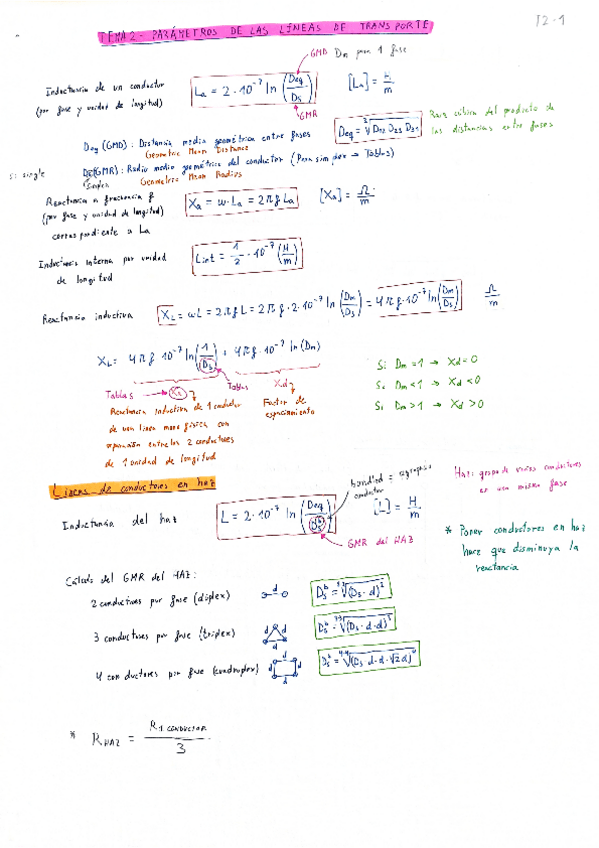 TEMA 2 - PARÁMETROS DE LAS LÍNEAS DE TRANSPORTE
T2-1
GMD Dm para 1 fase
Inductancia de un conductor
(por fase y unidad de longitud)
La = 2·10⁻⁷ ln (Deq/Ds)
[La] = H/m
GMR
Deq (GMD): Distancia media geométrica entre fases
Geometric Mean Distance
Deq = ³√D12 D23 D31
Raíz cúbica del producto de
las distancias entre fases
Si single
Ds(GMR): Radio medio geométrico del conductor (Para simplex → Tablas)
Simplex Geometric Mean Radius
Reactancia a frecuencia f
(por fase y unidad de longitud)
correspondiente a La
Xa = w·La = 2πf La
[Xa] = Ω/m
Inductancia interna por unidad
de longitud
Lint = 1/2 · 10⁻⁷ (H/m)
Reactancia inductiva
XL = ωL = 2πf L = 2πf · 2·10⁻⁷ ln (Dm/Ds) = 4πf·10⁻⁷ ln (Dm/Ds)
Ω/m
XL = 4πf·10⁻⁷ ln (1/Ds) + 4πf·10⁻⁷ ln (Dm)
Tablas
Tablas → Xa
Xd
Reactancia inductiva de 1 conductor
de una línea monofásica con
separación entre los 2 conductores
de 1 unidad de longitud
Factor de
espaciamiento
Si Dm = 1 → Xd = 0
Si Dm < 1 → Xd < 0
Si Dm > 1 → Xd > 0
Líneas de conductores en haz
bundled = agrupado
conductor
Inductancia del haz
L = 2·10⁻⁷ ln (Deq/Dsᵇ)
[L] = H/m
GMR del HAZ
Haz: grupo de varios conductores
en una misma fase
* Poner conductores en haz
hace que disminuya la
reactancia
Cálculo del GMR del HAZ:
2 conductores por fase (dúplex)
d
Dsᵇ = ²·²√(Ds·d)²
3 conductores por fase (triplex)
d d
d
Dsᵇ = ³·³√(Ds·d·d)³
4 conductores por fase (cuadruplex)
d
d d
d
Dsᵇ = ⁴·⁴√(Ds·d·d·√2d)⁴
* R HAZ = R 1 CONDUCTOR / 3